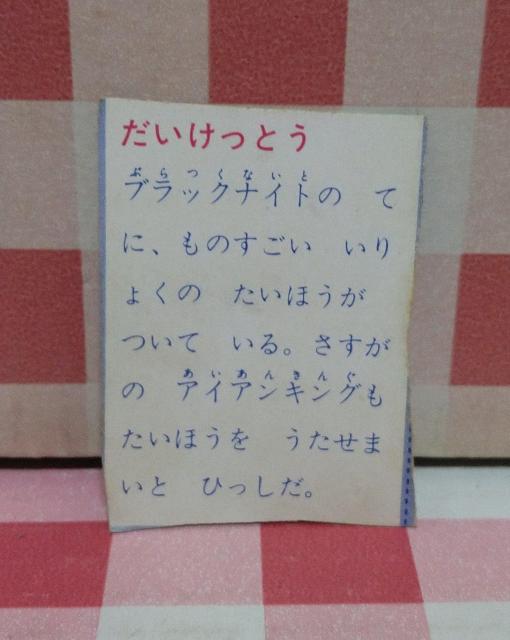 だいけっとう
ブラックナイトの　て
に、ものすごい　いり
ょくの　たいほうが
ついて　いる。さすが
の　アイアンキングも
たいほうを　うたせま
いと　ひっしだ。